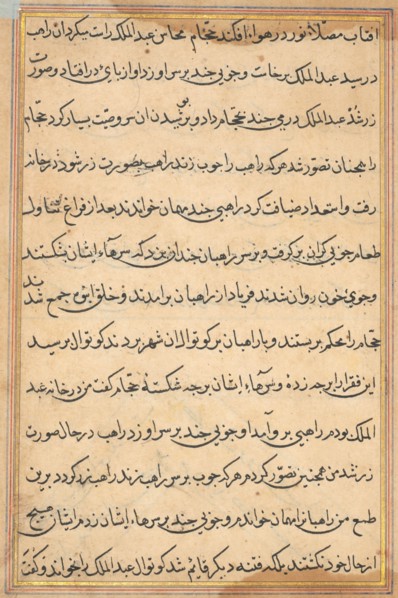 افتاب مصلاء نور در هواء افکند حجام محاسن عبدالملک راست میکرد ان راهب
در رسید عبدالملک برخاست و چوبی چند بر سر او زد او از پای در افتاد و صورت
زر شد عبدالملک درمی چند بحجام داد و بر پوشیدن ان سر وصیت بسیار کرد حجام
را همچنان تصور شد هرکه راهب را چوب زند راهب بصورت زر شود در خانه
رفت و استعداد ضیافت کرد راهبی چند مهمان خواند بعد از فراغ تناول
طعام چوبی کران بر کرفت و بر سر راهبان چندان بزد که سرهاء ایشان بشکستند
و جوی خون روان شدند فریاد از راهبان برامدند و خلق انبوه جمع شدند
حجام را محکم بر بستند و با راهبان بر کوتوالان شهر بردند کوتوال برسید
این فقرا را برجه زده و سرهاء ایشان برجه شکستهٔ حجام کفت من در خانه عبد
الملک بودم راهبی بر و آمد او چوبی چند بر سر او زد راهب در حال صورت
زر شد من همچنین تصور کردم هرکه چوب بر سر راهب زند راهب زر کردد برین
طمع من راهبانرا مهمان خواندم و چوبی چند بر سرهاء ایشان زدم ایشان هیچ
از حال خود نکشتند بلکه فتنه دیکر قائم شد کوتوال عبدالملک را خواند و کفت